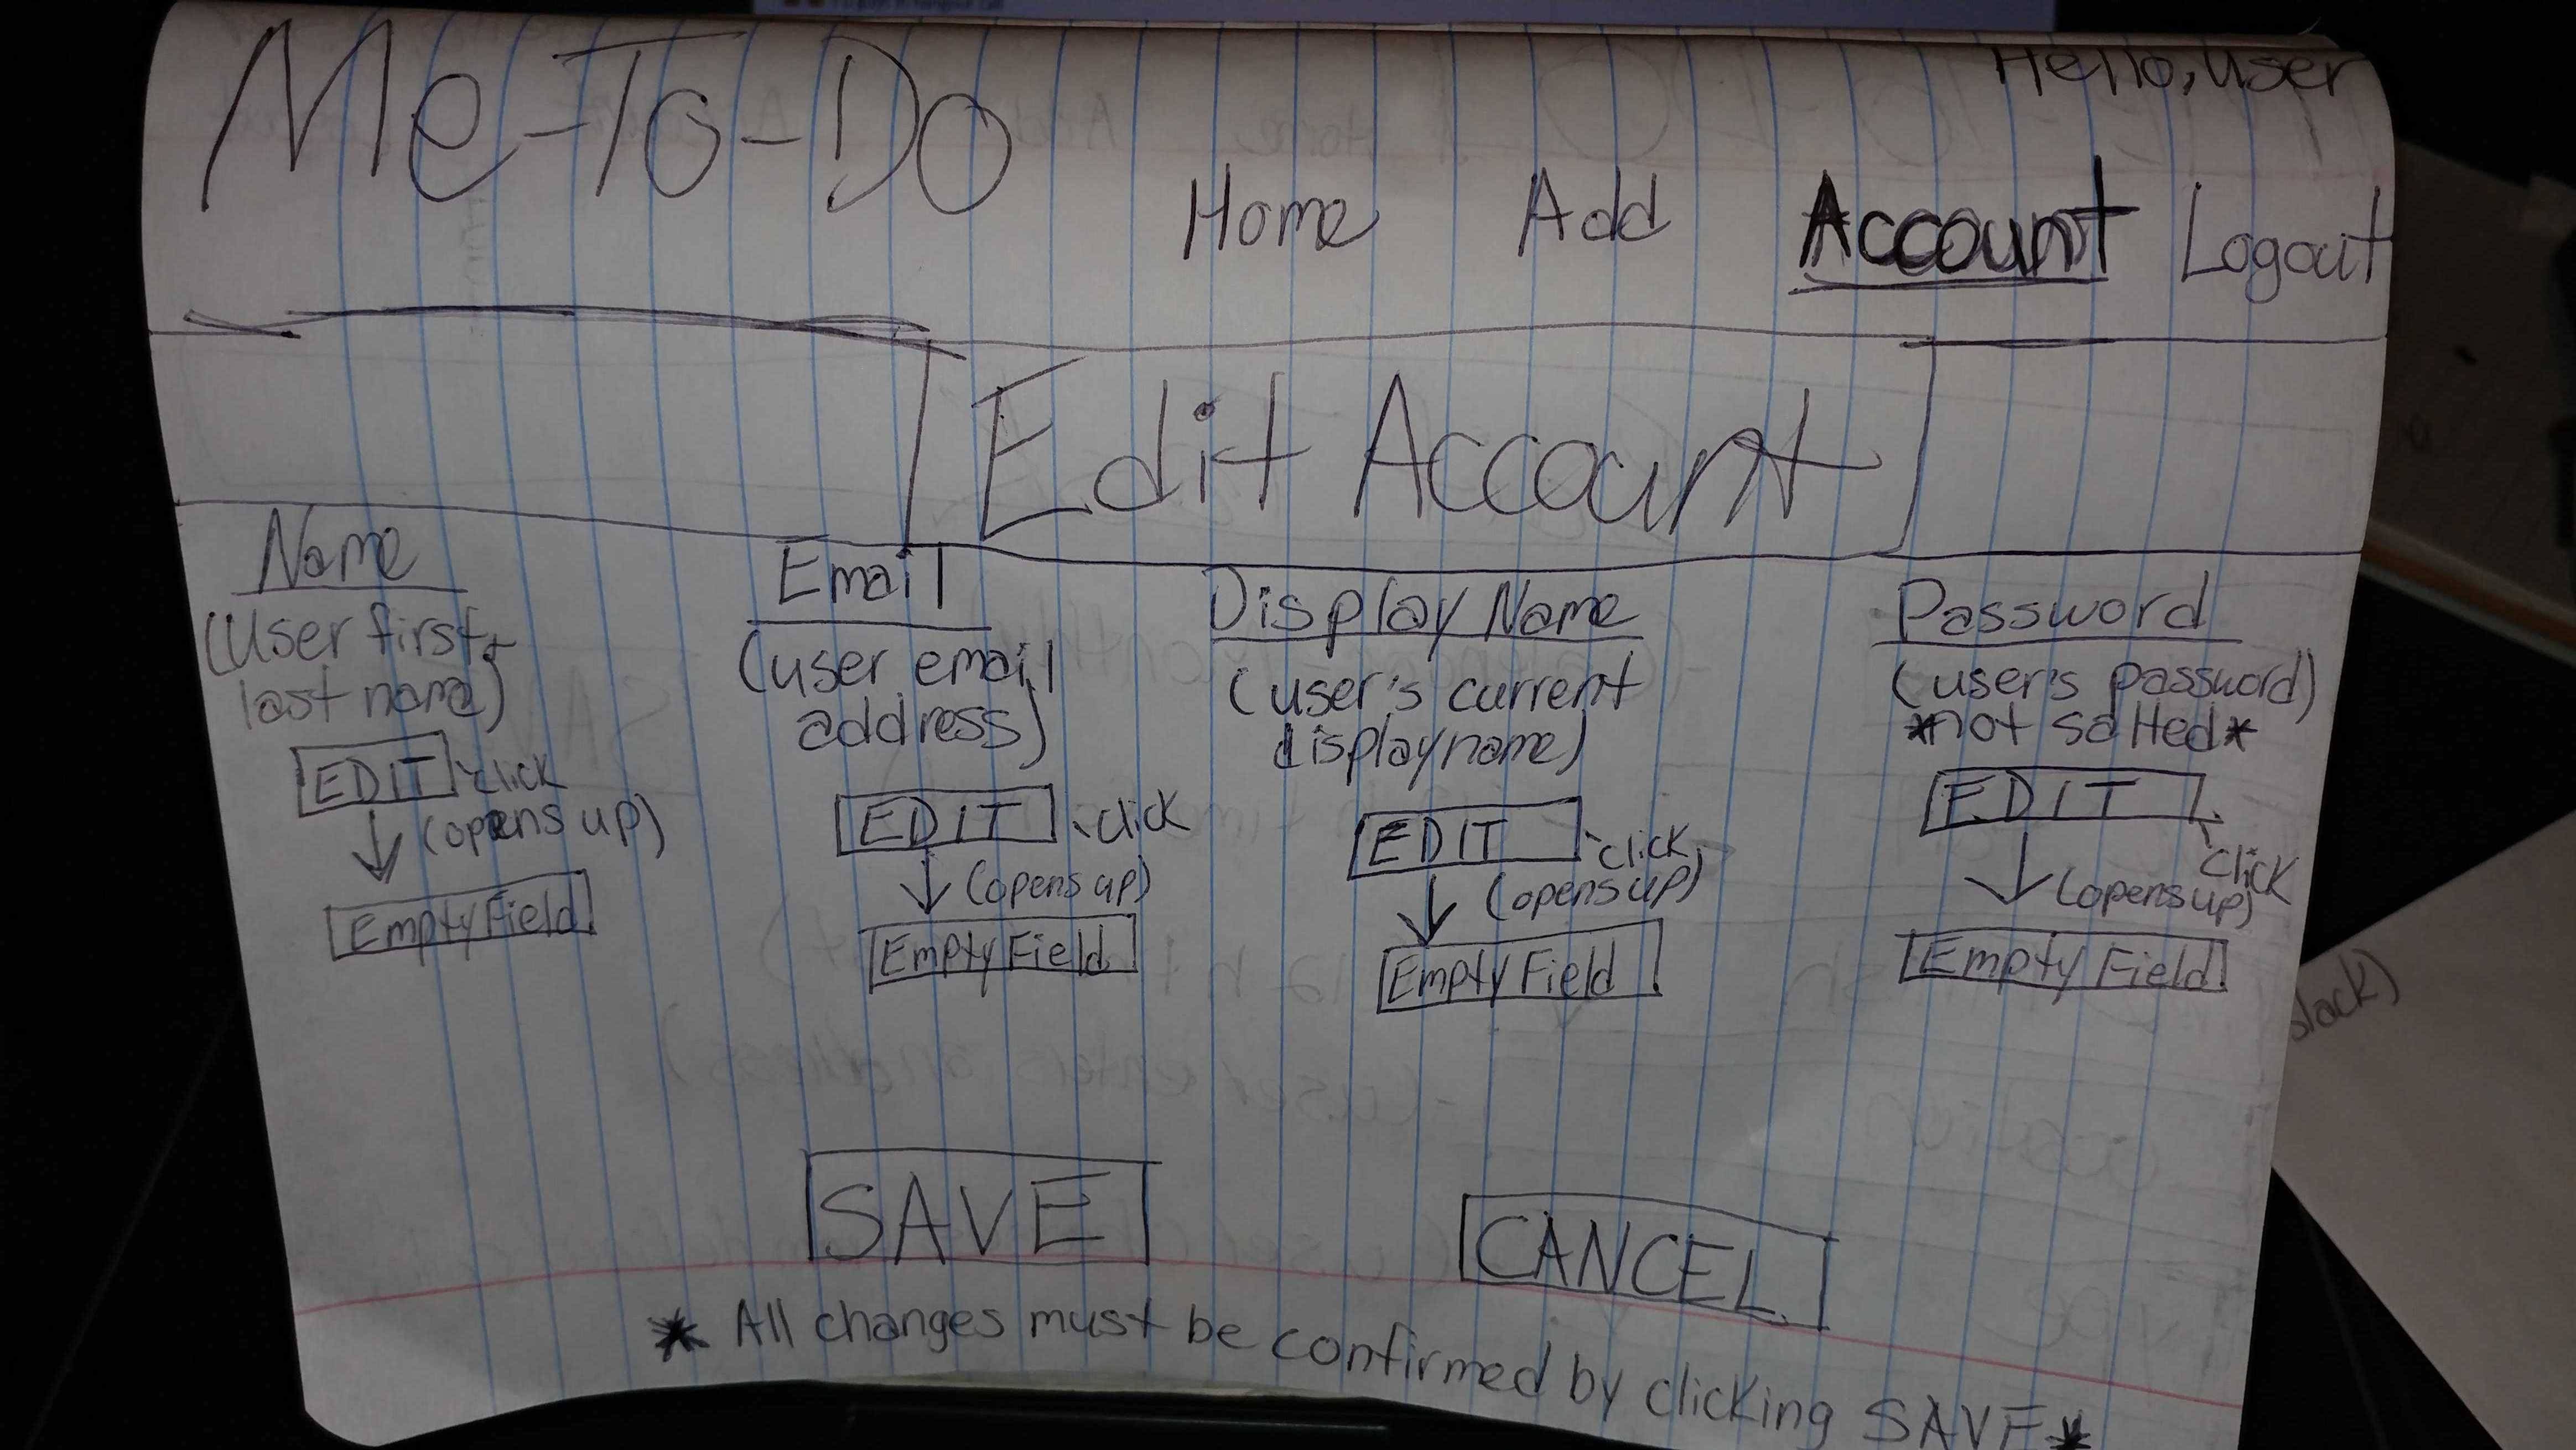 Hello, User
Me-To-Do
Home Add Account Logout
Edit Account
Name
(User first +
last name)
EDIT click
(opens up)
Empty Field
Email
(user email
address)
EDIT click
(opens up)
Empty Field
Display Name
(user's current
display name)
EDIT click
(opens up)
Empty Field
Password
(user's password)
*not salted*
EDIT
click
(opens up)
Empty Field
SAVE
CANCEL
* All changes must be confirmed by clicking SAVE *
slack)